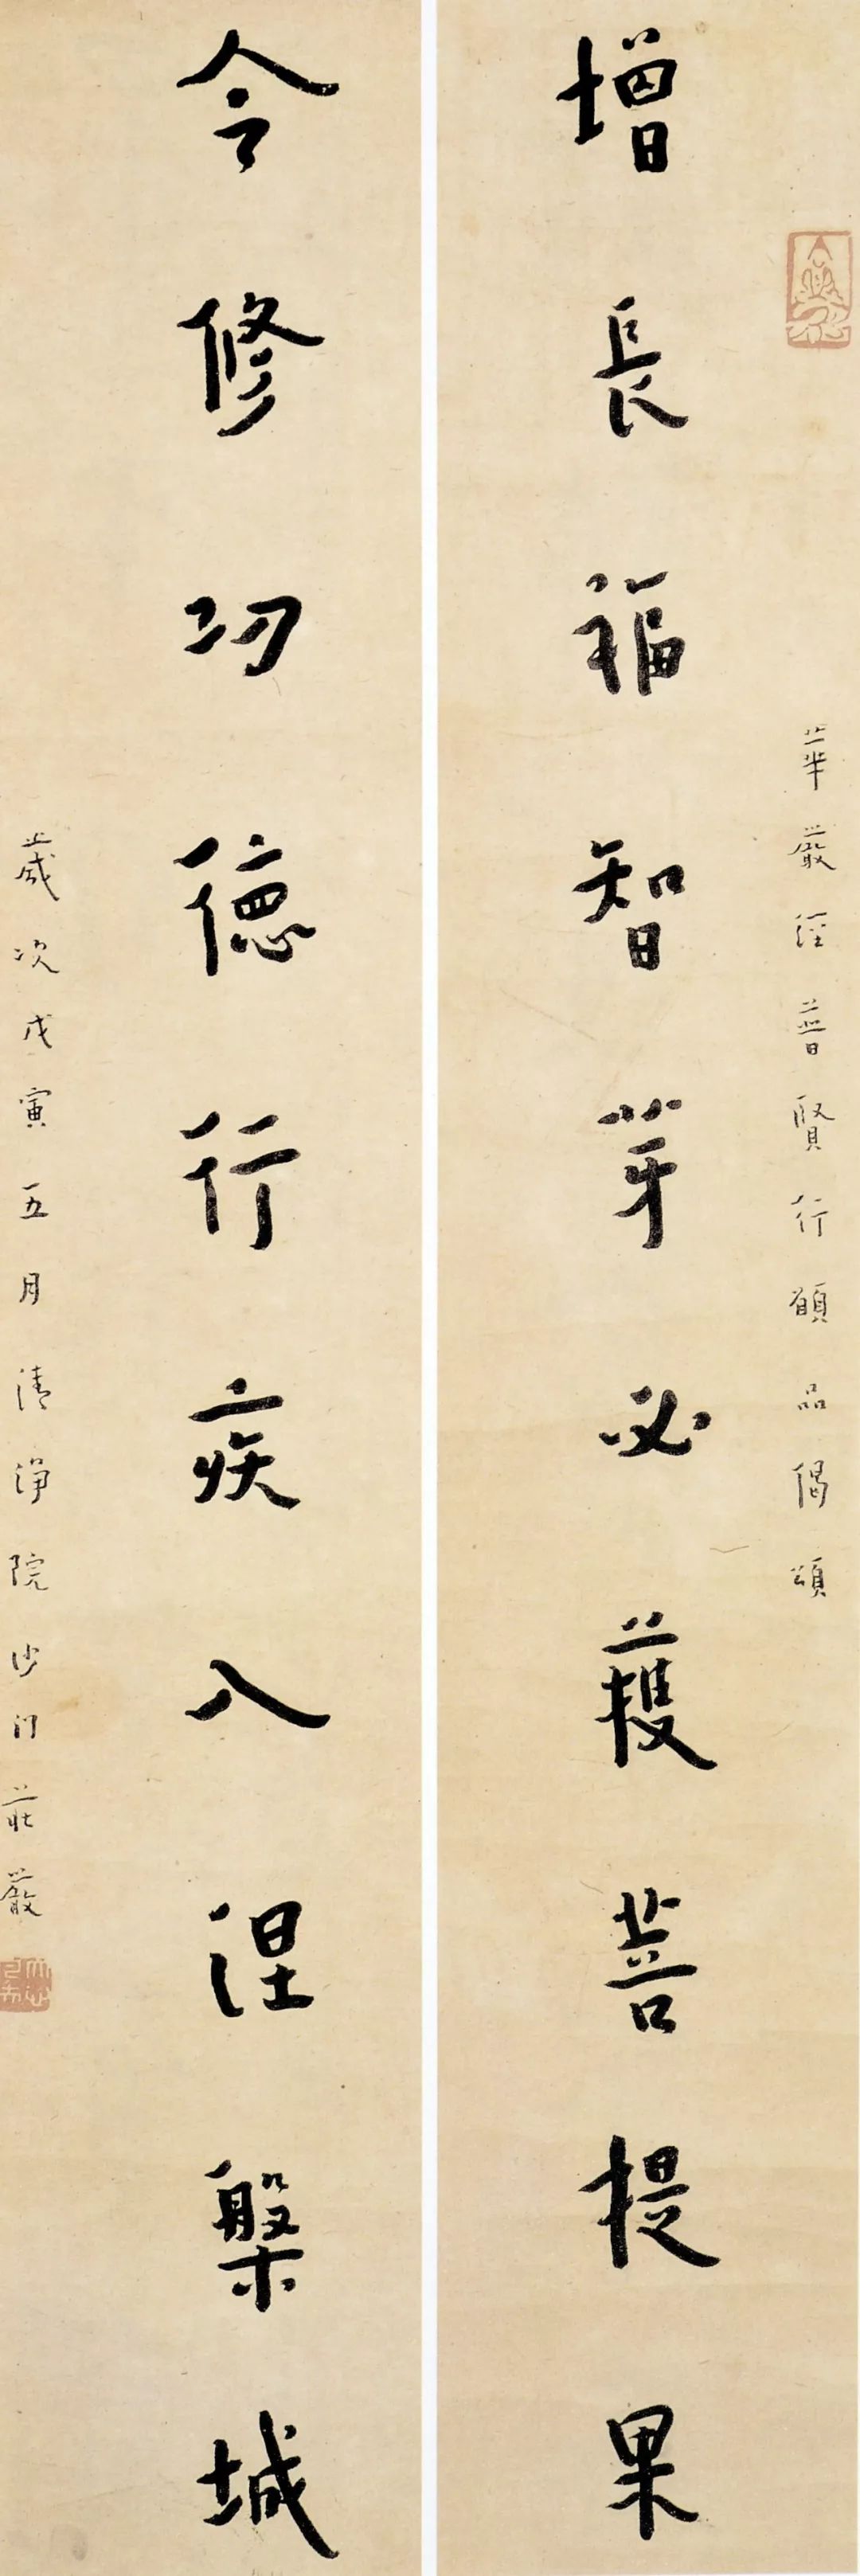 華嚴經普賢行願品偈頌
增長福智芽必獲菩提果
令修功德行疾入涅槃城
歲次戊寅五月清淨院沙门莊嚴